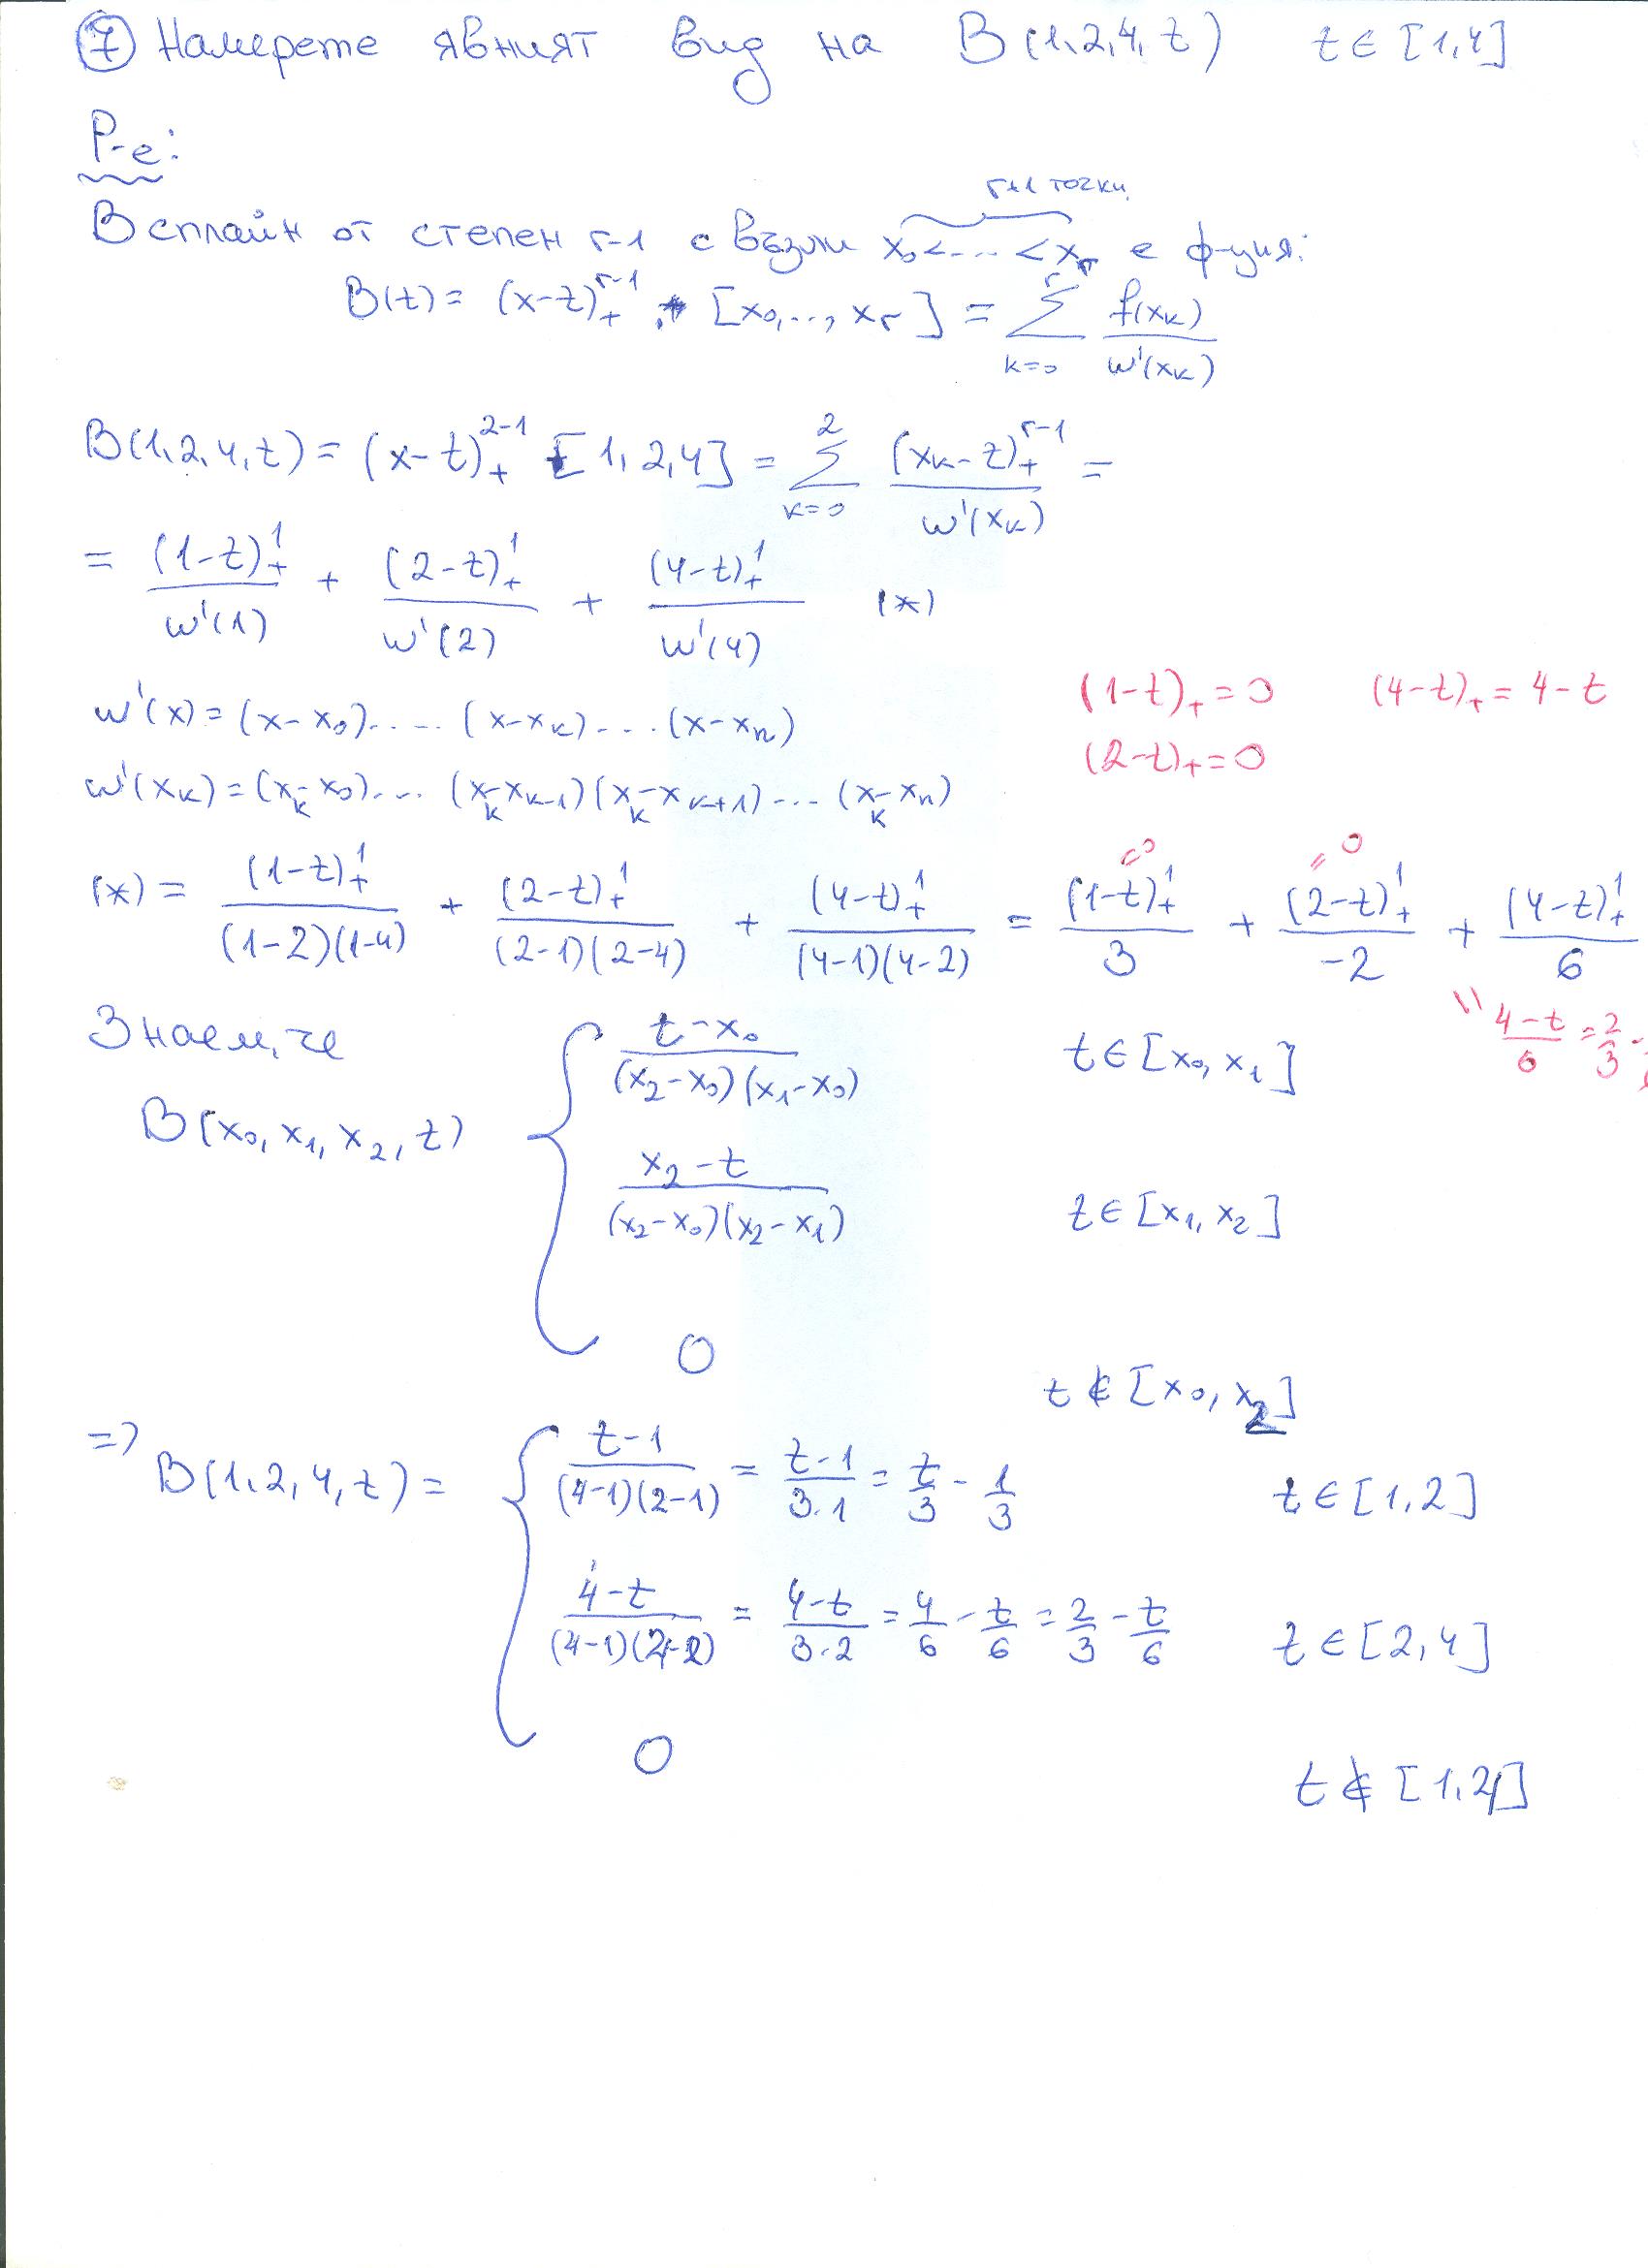 ⑦ Намерете явният вид на B(1,2,4,t) t ∈ [1,4]
Р-е:
r+1 точки
B сплайн от степен r-1 с възли x₀<...<xᵣ е ф-ция:
B(t) = (x-t)₊^(r-1) [x₀,..., xᵣ] = Σ_(k=0)^r f(xₖ)/w'(xₖ)
B(1,2,4,t) = (x-t)₊^(2-1) [1,2,4] = Σ_(k=0)^2 (xₖ-t)₊^(r-1)/w'(xₖ) =
= (1-t)₊^1/w'(1) + (2-t)₊^1/w'(2) + (4-t)₊^1/w'(4) (*)
(1-t)₊ = 0 (4-t)₊ = 4-t
w'(x) = (x-x₀)....(x-xₖ)...(x-xₙ)
(2-t)₊ = 0
w'(xₖ) = (xₖ-x₀)...(xₖ-xₖ₋₁)(xₖ-xₖ₊₁)...(xₖ-xₙ)
=0 =0
(*) = (1-t)₊^1/(1-2)(1-4) + (2-t)₊^1/(2-1)(2-4) + (4-t)₊^1/(4-1)(4-2) = (1-t)₊^1/3 + (2-t)₊^1/-2 + (4-t)₊^1/6
\\ 4-t/6 = 2/3 -
Знаем, че
B(x₀,x₁,x₂,t) { t-x₀/(x₂-x₀)(x₁-x₀) t ∈ [x₀,x₁]
x₂-t/(x₂-x₀)(x₂-x₁) t ∈ [x₁,x₂]
0 t ∉ [x₀,x₂]
=> B(1,2,4,t) = { t-1/(4-1)(2-1) = t-1/3.1 = t/3 - 1/3 t ∈ [1,2]
4-t/(4-1)(4-2) = 4-t/3.2 = 4/6 - t/6 = 2/3 - t/6 t ∈ [2,4]
0 t ∉ [1,4]